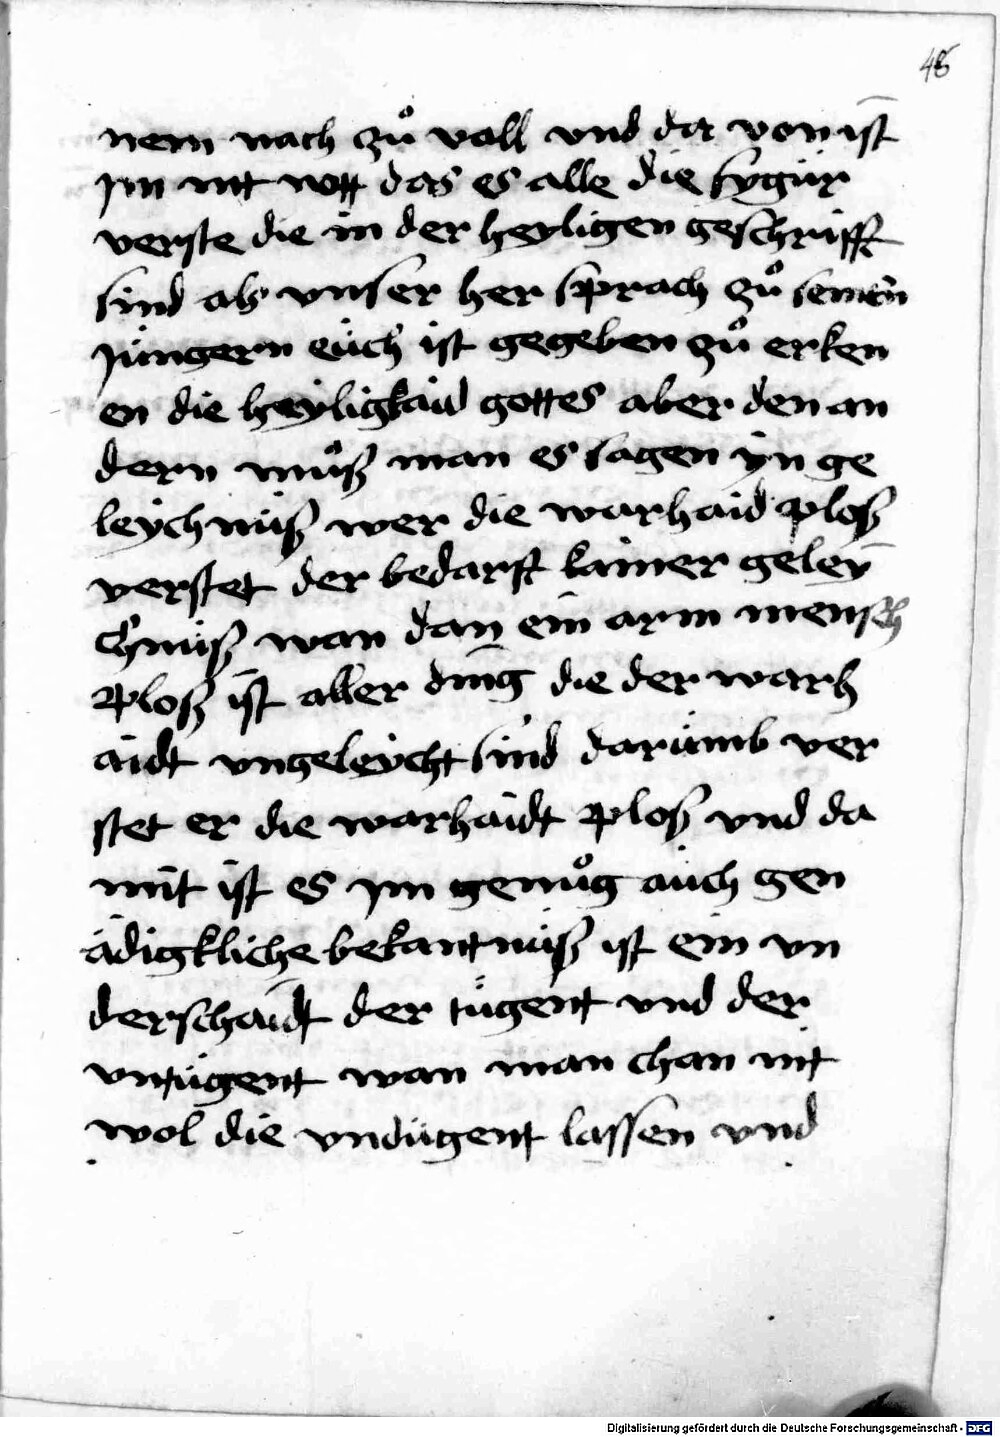 48
nem nach zů voll vnd da von ist
jm nit nott das es alle die fygür
verste die in der heyligen geschrifft
sind als vnser her sprach zů seinen
jüngern eüch ist gegeben zů erken
en die heyligkaid gottes aber den an
dern můß man es sagen yn ge
leychnüß wer die warhaid ploß
verstet der bedarff kainer geley
chnüß wan dan ein arm mensch
ploß ist aller ding die der warh
aidt vngeleycht sind darümb ver
stet er die warhaidt ploß vnd da
mit ist es jm genůg aüch gen
ädigkliche bekantnüß ist ein vn
derschaidt der tügent vnd der
vntügent wan man chan nit
wol die vndügent lassen vnd
Digitalisierung gefördert durch die Deutsche Forschungsgemeinschaft - DFG